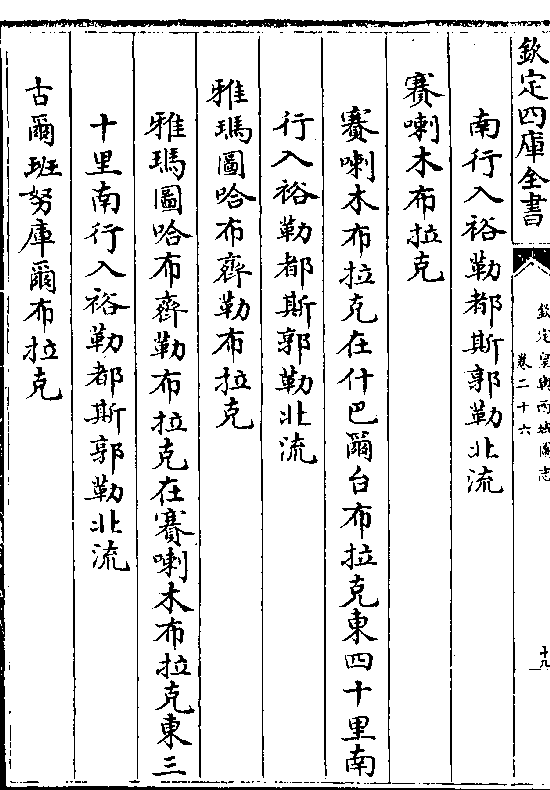 欽定四庫全書
欽定皇輿西域圖志
卷二十六
十九
南行入裕勒都斯郭勒北流
賽喇木布拉克
賽喇木布拉克在什巴爾台布拉克東四十里南
行入裕勒都斯郭勒北流
雅瑪圖哈布齊勒布拉克
雅瑪圖哈布齊勒布拉克在賽喇木布拉克東三
十里南行入裕勒都斯郭勒北流
古爾班努庫爾布拉克